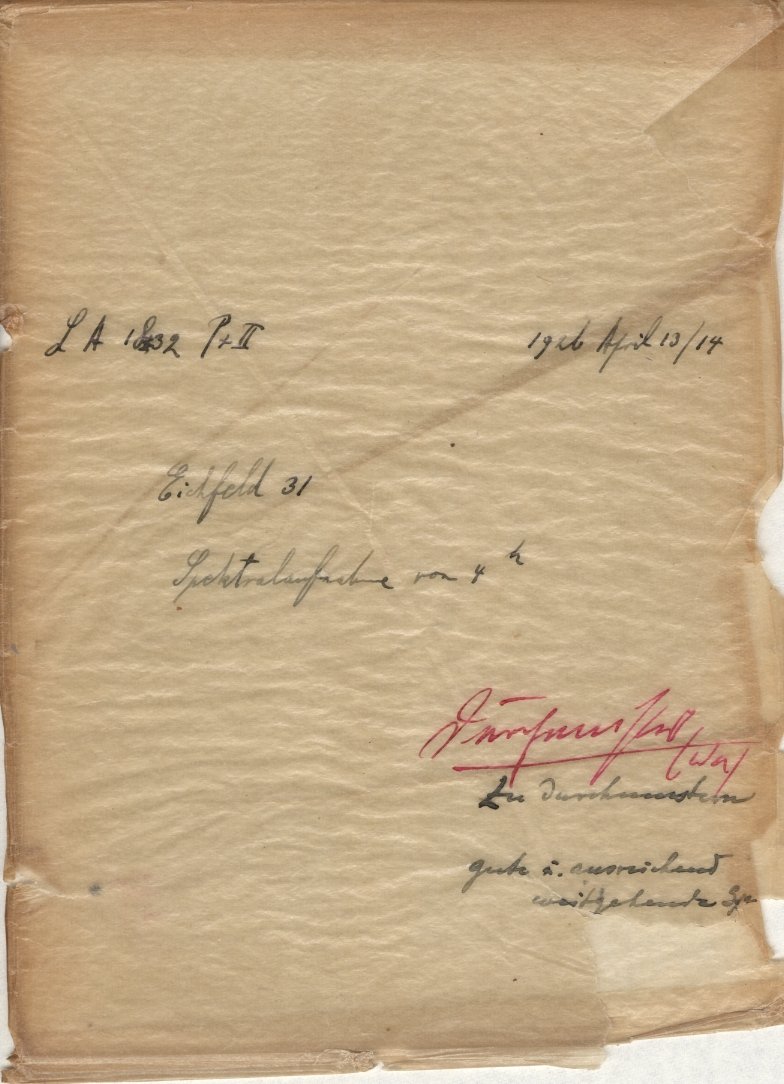 L A 1832 P+II
1926 April 13/14
Eichfeld 31
Spektralaufnahme von 4 h
Durchmustert
(Wa)
Zu Durchmustern
gute u. ausreichend
weitgehende Spe